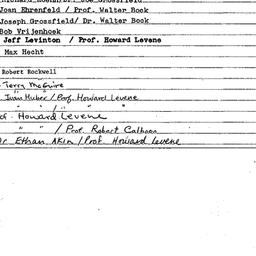 Joan Ehrenfeld / Prof. Walter Bock
Joseph Grossfield/ Dr. Walter Bock
Bob Vrijenhoek
Jeff Levinton / Prof. Howard Levene
Max Hecht
Robert Rockwell
Terry McGuire
Juan Huber / Prof. Howard Levene
" " / " "
Howard Levene
" " / Prof. Robert Calhoon
Ethan Akin / Prof. Howard Levene